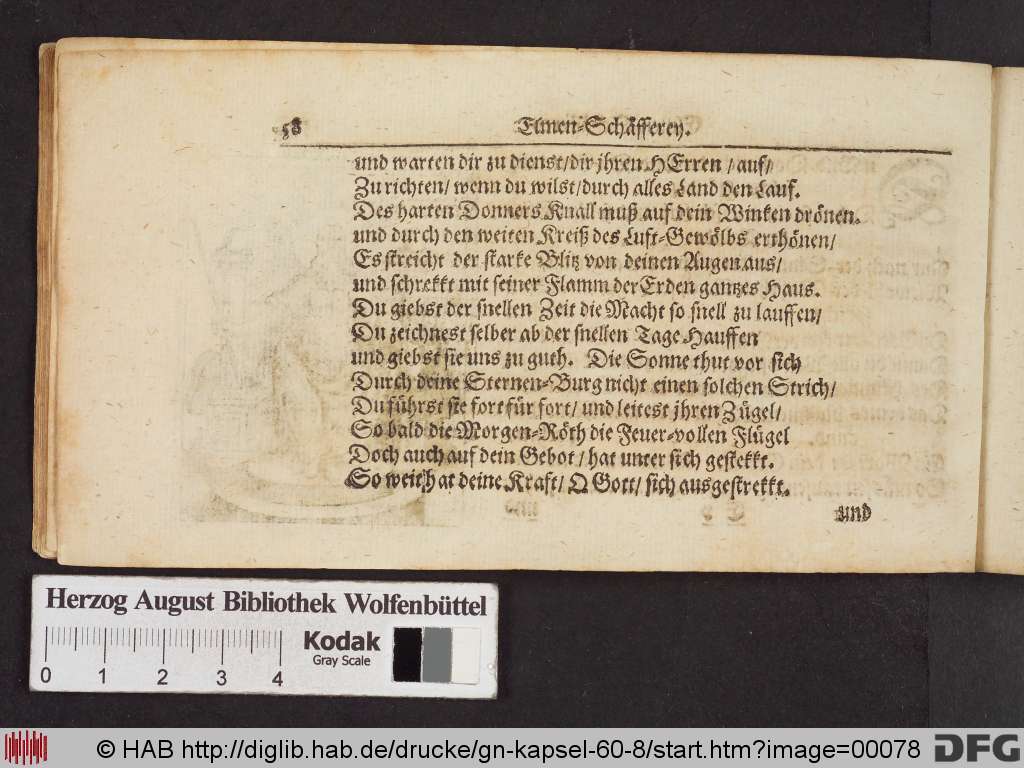 58
Elmen-Schäfferey.
und warten dir zu dienst/dir jhren HErren /auf/
Zu richten/ wenn du wilst/durch alles Land den Lauf.
Des harten Donners Knall muß auf dein Winken drönen.
und durch den weiten Kreiß des Luft-Gewölbs erthönen/
Es streicht der starke Blitz von deinen Augen aus/
und schrekkt mit seiner Flamm der Erden gantzes Haus.
Du giebst der snellen Zeit die Macht so snell zu lauffen/
Du zeichnest selber ab der snellen Tage Hauffen
und giebst sie uns zu guth. Die Sonne thut vor sich
Durch deine Sternen-Burg nicht einen solchen Strich/
Du führst sie fort für fort/ und leitest jhren Zügel/
So bald die Morgen-Röth die Feuer-vollen Flügel
Doch auch auf dein Gebot/ hat unter sich gestekkt.
So weit hat deine Kraft/ O Gott/ sich ausgestrekkt.
und
Herzog August Bibliothek Wolfenbüttel
Kodak
Gray Scale
0 1 2 3 4
© HAB http://diglib.hab.de/drucke/gn-kapsel-60-8/start.htm?image=00078
DFG